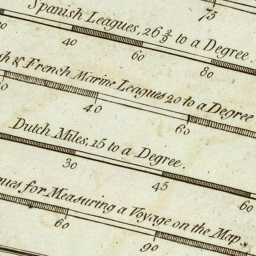 75
Spanish Leagues, 26 2/3 to a Degree
40 60 80
& French Marine Leagues 20 to a Degree
40 60
Dutch Miles, 15 to a Degree
30 45 60
for Measuring a Voyage on the Map
60 90